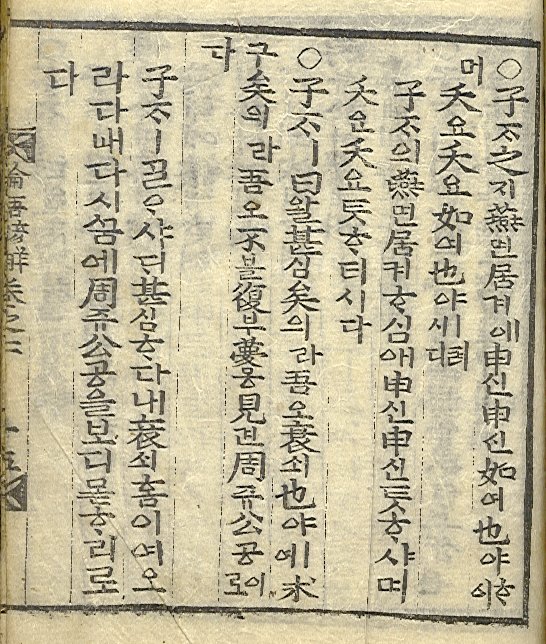 ○子ᄌᆞ之지燕연居거에申신申신如여也야ᄒᆞ시
며夭요夭요如여也야ㅣ러시다
子ᄌᆞ의燕연居거ᄒᆞ심애申신申신듯ᄒᆞ샤며
夭요夭요듯ᄒᆞ더시다
○子ᄌᆞㅣ曰왈甚심矣의라吾오衰쇠也야ㅣ여久
구矣의라吾오不블復부夢몽見견周쥬公공이로
다
子ᄌᆞㅣᄀᆞᆯᄋᆞ샤ᄃᆡ甚심ᄒᆞ다내衰쇠홈이여오
라다내다시ᄭᅮᆷ에周쥬公공을보디몯ᄒᆞ리로
다
論語諺解卷之二
十五